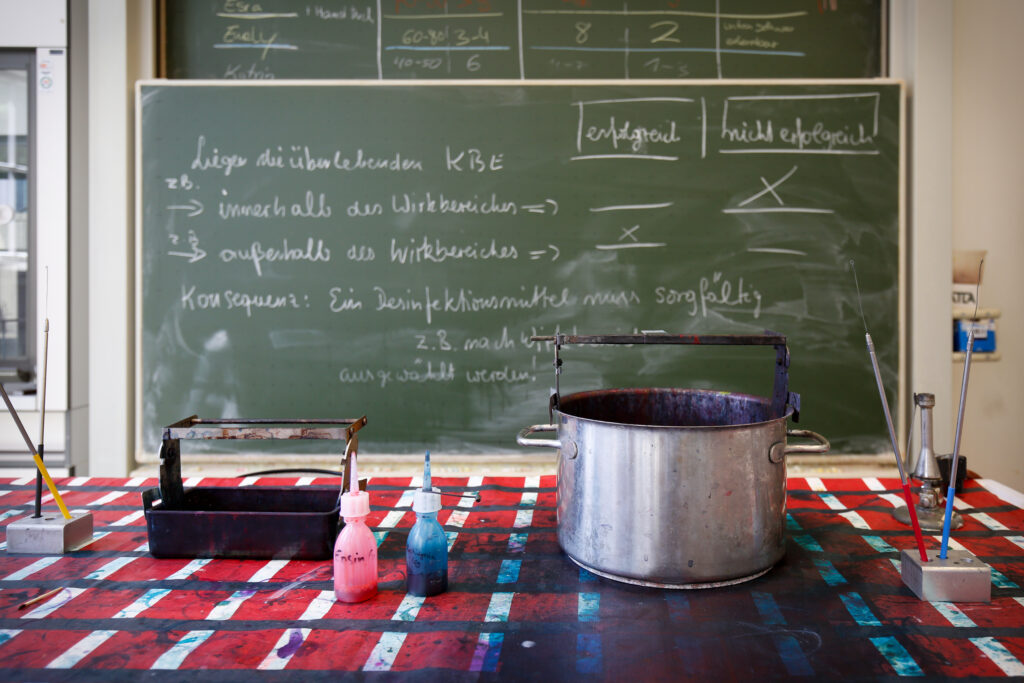 Esra
60-80 3-4 8 2
40-50 6 1-2 1-3
Katrin
erfolgreich nicht erfolgreich
Liegen die überlebenden KBE
z.B.
→ innerhalb des Wirkbereiches => X
z.B.
→ außerhalb des Wirkbereiches => X
Konsequenz: Ein Desinfektionsmittel muss sorgfältig
z.B. nach
ausgewählt werden!